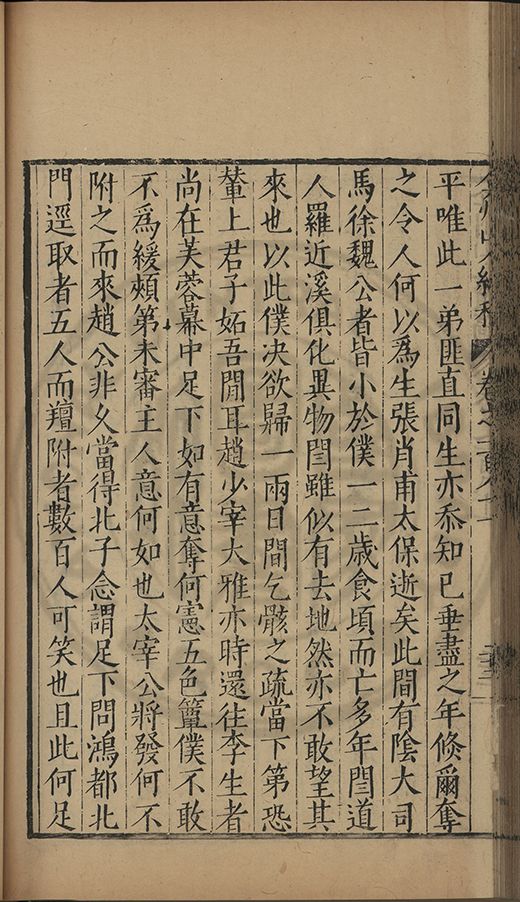 弇州山人續稿　卷之一百八十一　二十二
平唯此一弟匪直同生亦忝知已垂盡之年倐爾奪
之令人何以爲生張肖甫太保逝矣此間有陰大司
馬徐魏公者皆小於僕一二歲食頃而亡多年閏道
人羅近溪俱化異物閏雖似有去地然亦不敢望其
來也以此僕决欲歸一兩日間乞骸之疏當下第恐
輦上君子妬吾閒耳趙少宰大雅亦時還往李生者
尚在芙蓉幕中足下如有意奪何憲五色篿僕不敢
不爲緩頰第未審主人意何如也太宰公將發何不
附之而來趙公非乆當得北子念謂足下問鴻都北
門逕取者五人而羶附者數百人可笑也且此何足